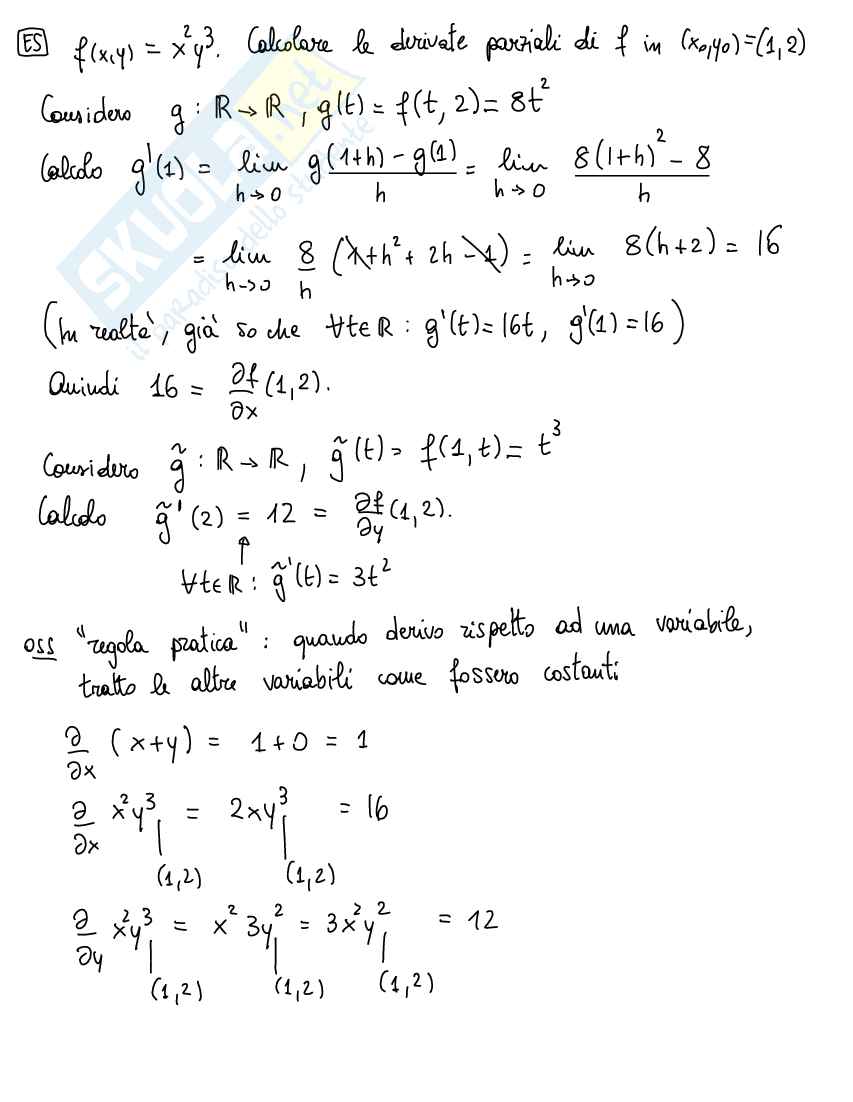 ES f(x,y) = x²y³. Calcolare le derivate parziali di f in (x₀,y₀)=(1,2)
Considero g : ℝ→ℝ, g(t) = f(t, 2) = 8t²
Calcolo g'(1) = lim_{h→0} (g(1+h) - g(1))/h = lim_{h→0} (8(1+h)² - 8)/h
= lim_{h→0} 8/h (1+h²+2h-1) = lim_{h→0} 8(h+2) = 16
(In realtà, già so che ∀t∈ℝ : g'(t) = 16t, g'(1) = 16)
Quindi 16 = ∂f/∂x (1,2).
Considero g̃ : ℝ→ℝ, g̃(t) = f(1,t) = t³
Calcolo g̃'(2) = 12 = ∂f/∂y (1,2).
↑
∀t∈ℝ : g̃'(t) = 3t²
OSS "regola pratica" : quando derivo rispetto ad una variabile,
tratto le altre variabili come fossero costanti
∂/∂x (x+y) = 1+0 = 1
∂/∂x x²y³ |(1,2) = 2xy³ |(1,2) = 16
∂/∂y x²y³ |(1,2) = x² 3y² |(1,2) = 3x²y² |(1,2) = 12
SKUOLA.net
il paradiso dello studente